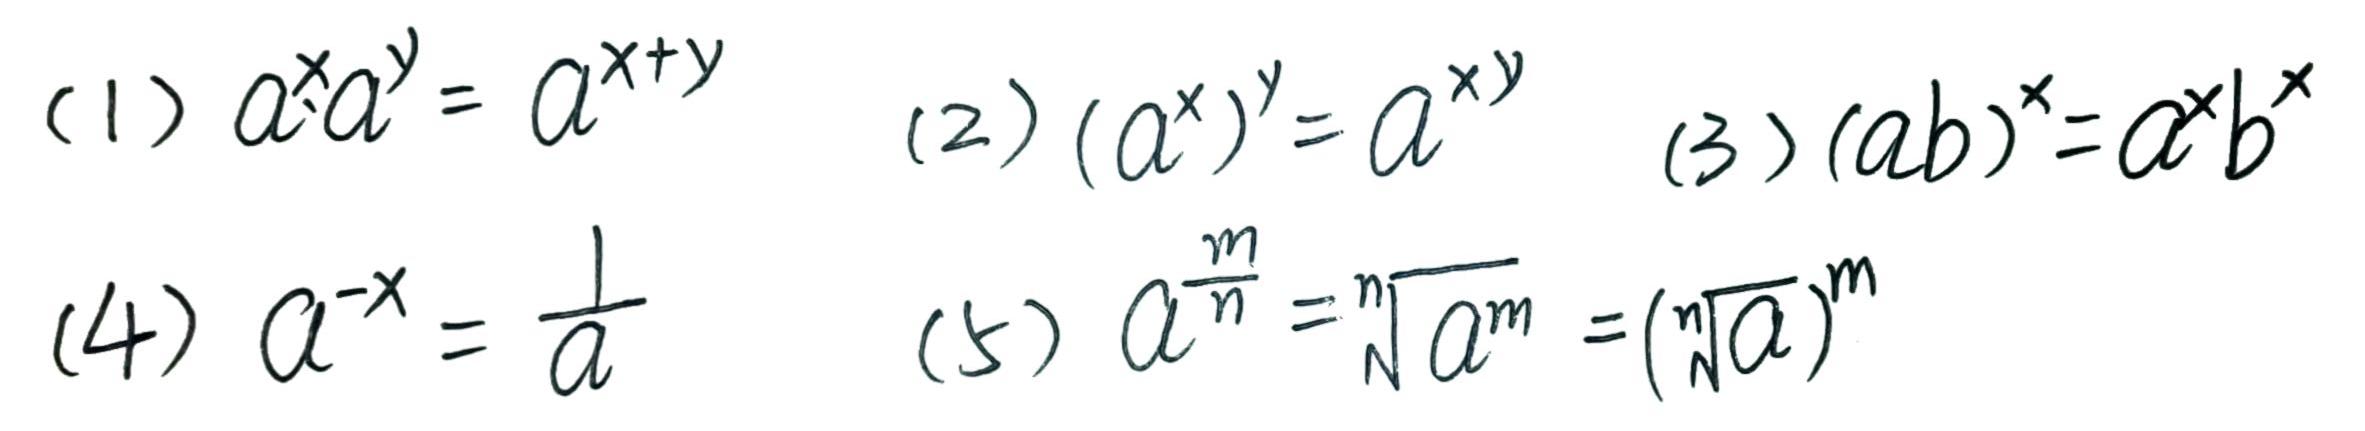 (1) a^x a^y = a^{x+y} (2) (a^x)^y = a^{xy} (3) (ab)^x = a^x b^x
(4) a^{-x} = \frac{1}{a} (5) a^{\frac{m}{n}} = \sqrt[n]{a^m} = (\sqrt[n]{a})^m